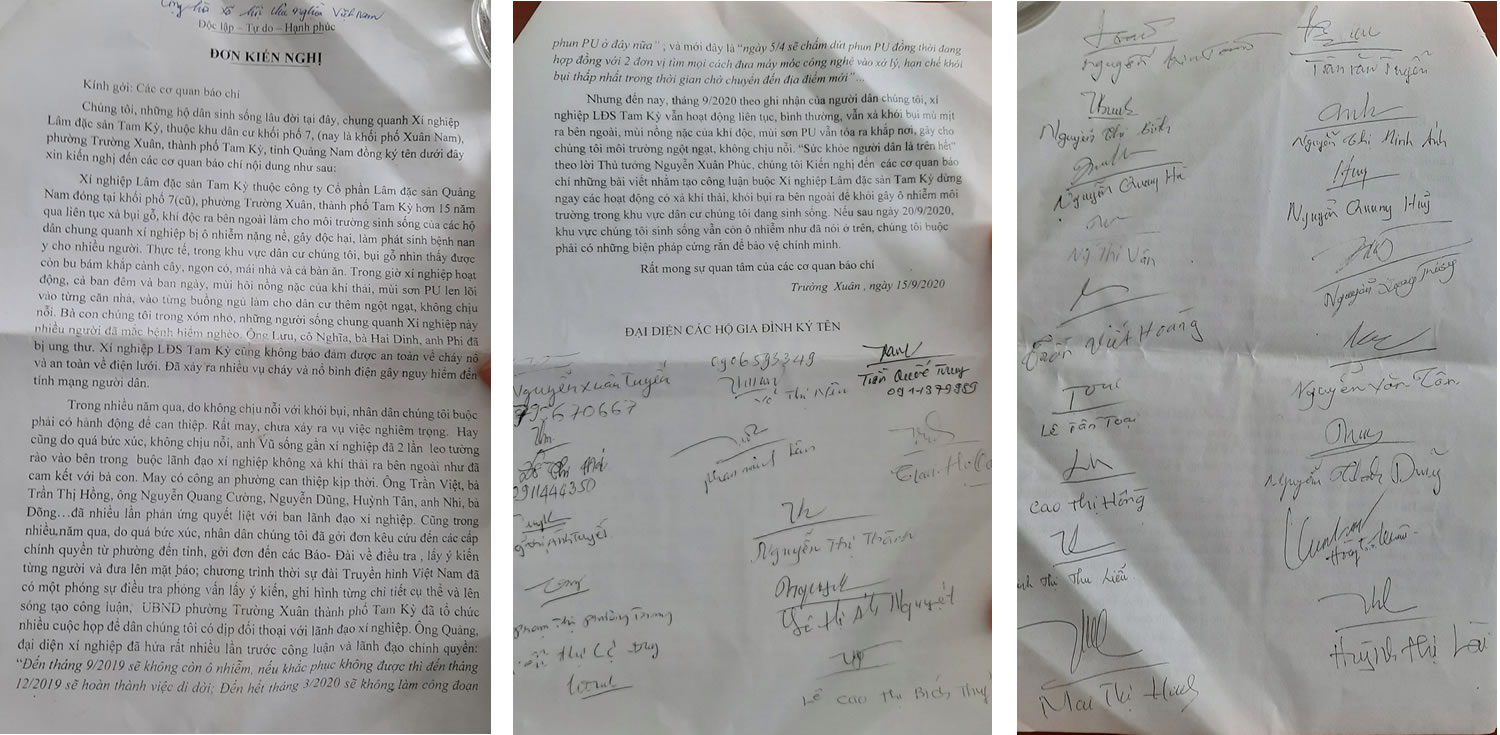 Cộng hòa xã hội chủ nghĩa Việt Nam
Độc lập – Tự do – Hạnh phúc
ĐƠN KIẾN NGHỊ
Kính gởi: Các cơ quan báo chí
Chúng tôi, những hộ dân sinh sống lâu đời tại đây, chung quanh Xí nghiệp
Lâm đặc sản Tam Kỳ, thuộc khu dân cư khối phố 7, (nay là khối phố Xuân Nam),
phường Trường Xuân, thành phố Tam Kỳ, tỉnh Quảng Nam đồng ký tên dưới đây
xin kiến nghị đến các cơ quan báo chí nội dung như sau:
Xí nghiệp Lâm đặc sản Tam Kỳ thuộc công ty Cổ phần Lâm đặc sản Quảng
Nam đóng tại khối phố 7(cũ), phường Trường Xuân, thành phố Tam Kỳ hơn 15 năm
qua liên tục xả bụi gỗ, khí độc ra bên ngoài làm cho môi trường sinh sống của các hộ
dân chung quanh xí nghiệp bị ô nhiễm nặng nề, gây độc hại, làm phát sinh bệnh nan
y cho nhiều người. Thực tế, trong khu vực dân cư chúng tôi, bụi gỗ nhìn thấy được
còn bu bám khắp cành cây, ngọn cỏ, mái nhà và cả bàn ăn. Trong giờ xí nghiệp hoạt
động, cả ban đêm và ban ngày, mùi hôi nồng nặc của khí thải, mùi sơn PU len lỏi
vào từng căn nhà, vào từng buồng ngủ làm cho dân cư thêm ngột ngạt, không chịu
nỗi. Bà con chúng tôi trong xóm nhỏ, những người sống chung quanh Xí nghiệp này
nhiều người đã mắc bệnh hiểm nghèo. Ông Lưu, cô Nghĩa, bà Hai Dinh, anh Phi đã
bị ung thư. Xí nghiệp LĐS Tam Kỳ cũng không bảo đảm được an toàn về cháy nổ
và an toàn về điện lưới. Đã xảy ra nhiều vụ cháy và nổ bình điện gây nguy hiểm đến
tính mạng người dân.
Trong nhiều năm qua, do không chịu nỗi với khói bụi, nhân dân chúng tôi buộc
phải có hành động để can thiệp. Rất may, chưa xảy ra vụ việc nghiêm trọng. Hay
cũng do quá bức xúc, không chịu nỗi, anh Vũ sống gần xí nghiệp đã 2 lần leo tường
rào vào bên trong buộc lãnh đạo xí nghiệp không xả khí thải ra bên ngoài như đã
cam kết với bà con. May có công an phường can thiệp kịp thời. Ông Trần Việt, bà
Trần Thị Hồng, ông Nguyễn Quang Cường, Nguyễn Dũng, Huỳnh Tân, anh Nhi, bà
Dõng…đã nhiều lần phản ứng quyết liệt với ban lãnh đạo xí nghiệp. Cũng trong
nhiều,năm qua, do quá bức xúc, nhân dân chúng tôi đã gởi đơn kêu cứu đến các cấp
chính quyền từ phường đến tỉnh, gởi đơn đến các Báo- Đài về điều tra , lấy ý kiến
từng người và đưa lên mặt báo; chương trình thời sự đài Truyền hình Việt Nam đã
có một phóng sự điều tra phỏng vấn lấy ý kiến, ghi hình từng chi tiết cụ thể và lên
sóng tạo công luận, UBND phường Trường Xuân thành phố Tam Kỳ đã tổ chức
nhiều cuộc họp để dân chúng tôi có dịp đối thoại với lãnh đạo xí nghiệp. Ông Quảng,
đại diện xí nghiệp đã hứa rất nhiều lần trước công luận và lãnh đạo chính quyền:
“Đến tháng 9/2019 sẽ không còn ô nhiễm, nếu khắc phục không được thì đến tháng
12/2019 sẽ hoàn thành việc di dời; Đến hết tháng 3/2020 sẽ không làm công đoạn
phun PU ở đây nữa” , và mới đây là “ngày 5/4 sẽ chấm dứt phun PU đồng thời đang
hợp đồng với 2 đơn vị tìm mọi cách đưa máy móc công nghệ vào xử lý, hạn chế khói
bụi thấp nhất trong thời gian chờ chuyển đến địa điểm mới”…
Nhưng đến nay, tháng 9/2020 theo ghi nhận của người dân chúng tôi, xí
nghiệp LĐS Tam Kỳ vẫn hoạt động liên tục, bình thường, vẫn xả khói bụi mù mịt
ra bên ngoài, mùi nồng nặc của khí độc, mùi sơn PU vẫn tỏa ra khắp nơi, gây cho
chúng tôi môi trường ngột ngạt, không chịu nỗi. “Sức khỏe người dân là trên hết”
theo lời Thủ tướng Nguyễn Xuân Phúc, chúng tôi Kiến nghị đến các cơ quan báo
chí những bài viết nhằm tạo công luận buộc Xí nghiệp Lâm đặc sản Tam Kỳ dừng
ngay các hoạt động có xả khí thải, khói bụi ra bên ngoài để khỏi gây ô nhiễm môi
trường trong khu vực dân cư chúng tôi đang sinh sống. Nếu sau ngày 20/9/2020,
khu vực chúng tôi sinh sống vẫn còn ô nhiễm như đã nói ở trên, chúng tôi buộc
phải có những biện pháp cứng rắn để bảo vệ chính mình.
Rất mong sự quan tâm của các cơ quan báo chí
Trường Xuân , ngày 15/9/2020
ĐẠI DIỆN CÁC HỘ GIA ĐÌNH KÝ TÊN
0906593349
Nguyễn Xuân Tuyển
Trần Quốc Trung
0911444350
Phan minh Tâm
Nguyễn Thị Thành
Thị Ánh Nguyệt
Lê Cao Thị Bích Thuỷ
Trần Văn Truyền
Nguyễn Thị Bích
Nguyễn Thị Minh Ánh
Nguyễn Quang Hà
Nguyễn Quang Huỷ
Ng Thị Vân
Trần Viết Hoàng
Nguyễn Văn Tân
Lê Tấn Toại
Cao Thị Hồng
Thị Thu Liễu
Huỳnh Thị Lài
Mai Thị